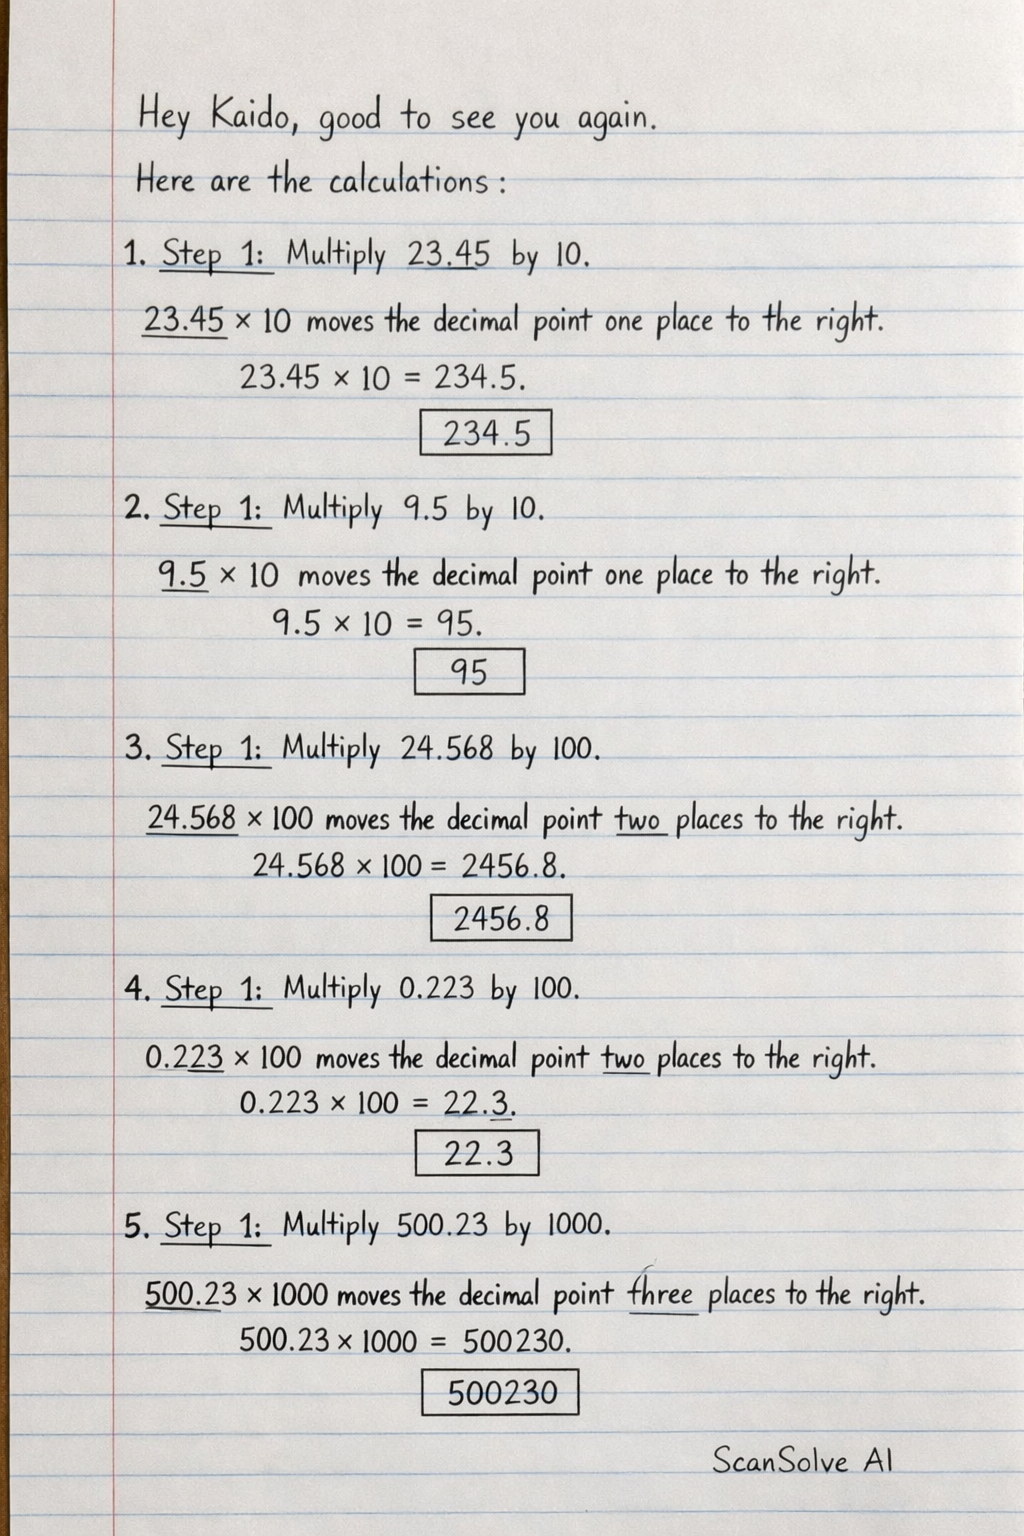 Hey Kaido, good to see you again.
Here are the calculations:
1. Step 1: Multiply 23.45 by 10.
23.45 × 10 moves the decimal point one place to the right.
23.45 × 10 = 234.5.
234.5
2. Step 1: Multiply 9.5 by 10.
9.5 × 10 moves the decimal point one place to the right.
9.5 × 10 = 95.
95
3. Step 1: Multiply 24.568 by 100.
24.568 × 100 moves the decimal point two places to the right.
24.568 × 100 = 2456.8.
2456.8
4. Step 1: Multiply 0.223 by 100.
0.223 × 100 moves the decimal point two places to the right.
0.223 × 100 = 22.3.
22.3
5. Step 1: Multiply 500.23 by 1000.
500.23 × 1000 moves the decimal point three places to the right.
500.23 × 1000 = 500230.
500230
ScanSolve AI